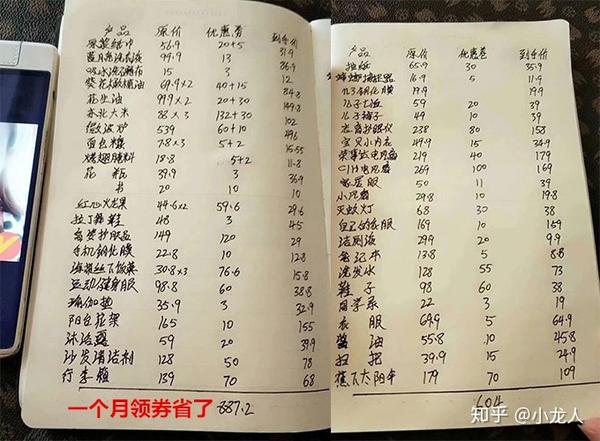 产品 原价 优惠券 到手价
原浆纸巾 56.9 20+5 31.9
蓝月亮洗衣液 99.9 13 36.9
吸水洗碗 15 3 12
葵花橄榄油 69.9×2 40+15 84.8
花生油 99.9×2 20+30 149.8
东北大米 88×3 132+30 102
微波炉 539 60+10
面包糠 7.8×3 5+2 15.55
烤翅腌料 18.8 5+2 11.8
花瓶 39.9 3 36.9
书 20 10 10
红心火龙果 44.6×2 59.6 29.6
拉丁舞鞋 48 3 45
149 120 29
手机钢化膜 22.8 10 12.8
30.8×3 76.6 15.8
运动健身服 98.8 60 38.8
瑜伽垫 35.9 3 32.9
阳台花架 165 10 155
沐浴露 59 20 39.9
沙发清洁剂 128 50 78
行李箱 139 70 68
一个月领券省了 887.2
产品 原价 优惠卷 到手价
拉杆 65.9 30 35.9
16.9 5 11.9
钢化膜 19.9 19.9
儿子七分 59 20 39
儿子裤子 49 10 39
238 80 158
宝贝小内衣 49.9 15 34.9
荣事达电 219 40 179
269 100 169
家居服 50 11 39
小风扇 29.8 10 19.8
灭蚊灯 68 30 38
自己的衣服 169 10 159
洁厕液 29.9 20 9.9
笔记本 13.8 5 8.8
洗发水 128 55 73
鞋子 98 60 38
同学录 22 3 19
衣服 69.9 5 64.9
酱油 55.8 10 45.8
扫把 39.9 15 24.9
蕉下太阳伞 179 70 109
604
知乎 @小龙人